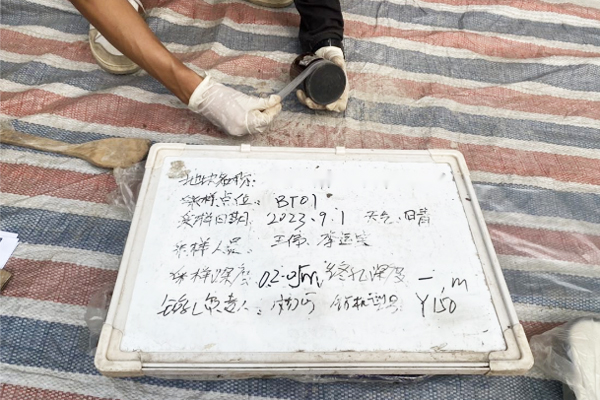 地块名称:
采样点位: BT01
采样日期: 2023.9.1 天气:晴
采样人员: 王伟 李运宝
采样深度: 0.2-0.5m 终孔深度 — m
钻孔负责人: 钻机型号: Y150